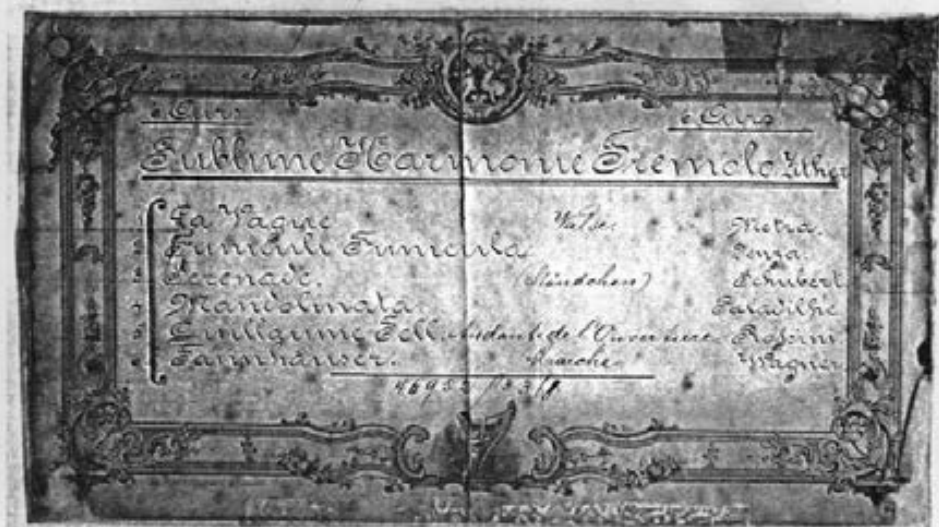 6 Airs 6 Airs
Sublime Harmonie Tremolo Zither
1 La Vague Valse. Metra.
2 Funiculi Funicula. Denza.
3 Serenade. (Ständchen) Schubert
4 Mandolinata. Paladilhe.
5 Guillaume Tell. Andante de l'Ouverture Rossini
6 Tannhäuser. Marche. Wagner